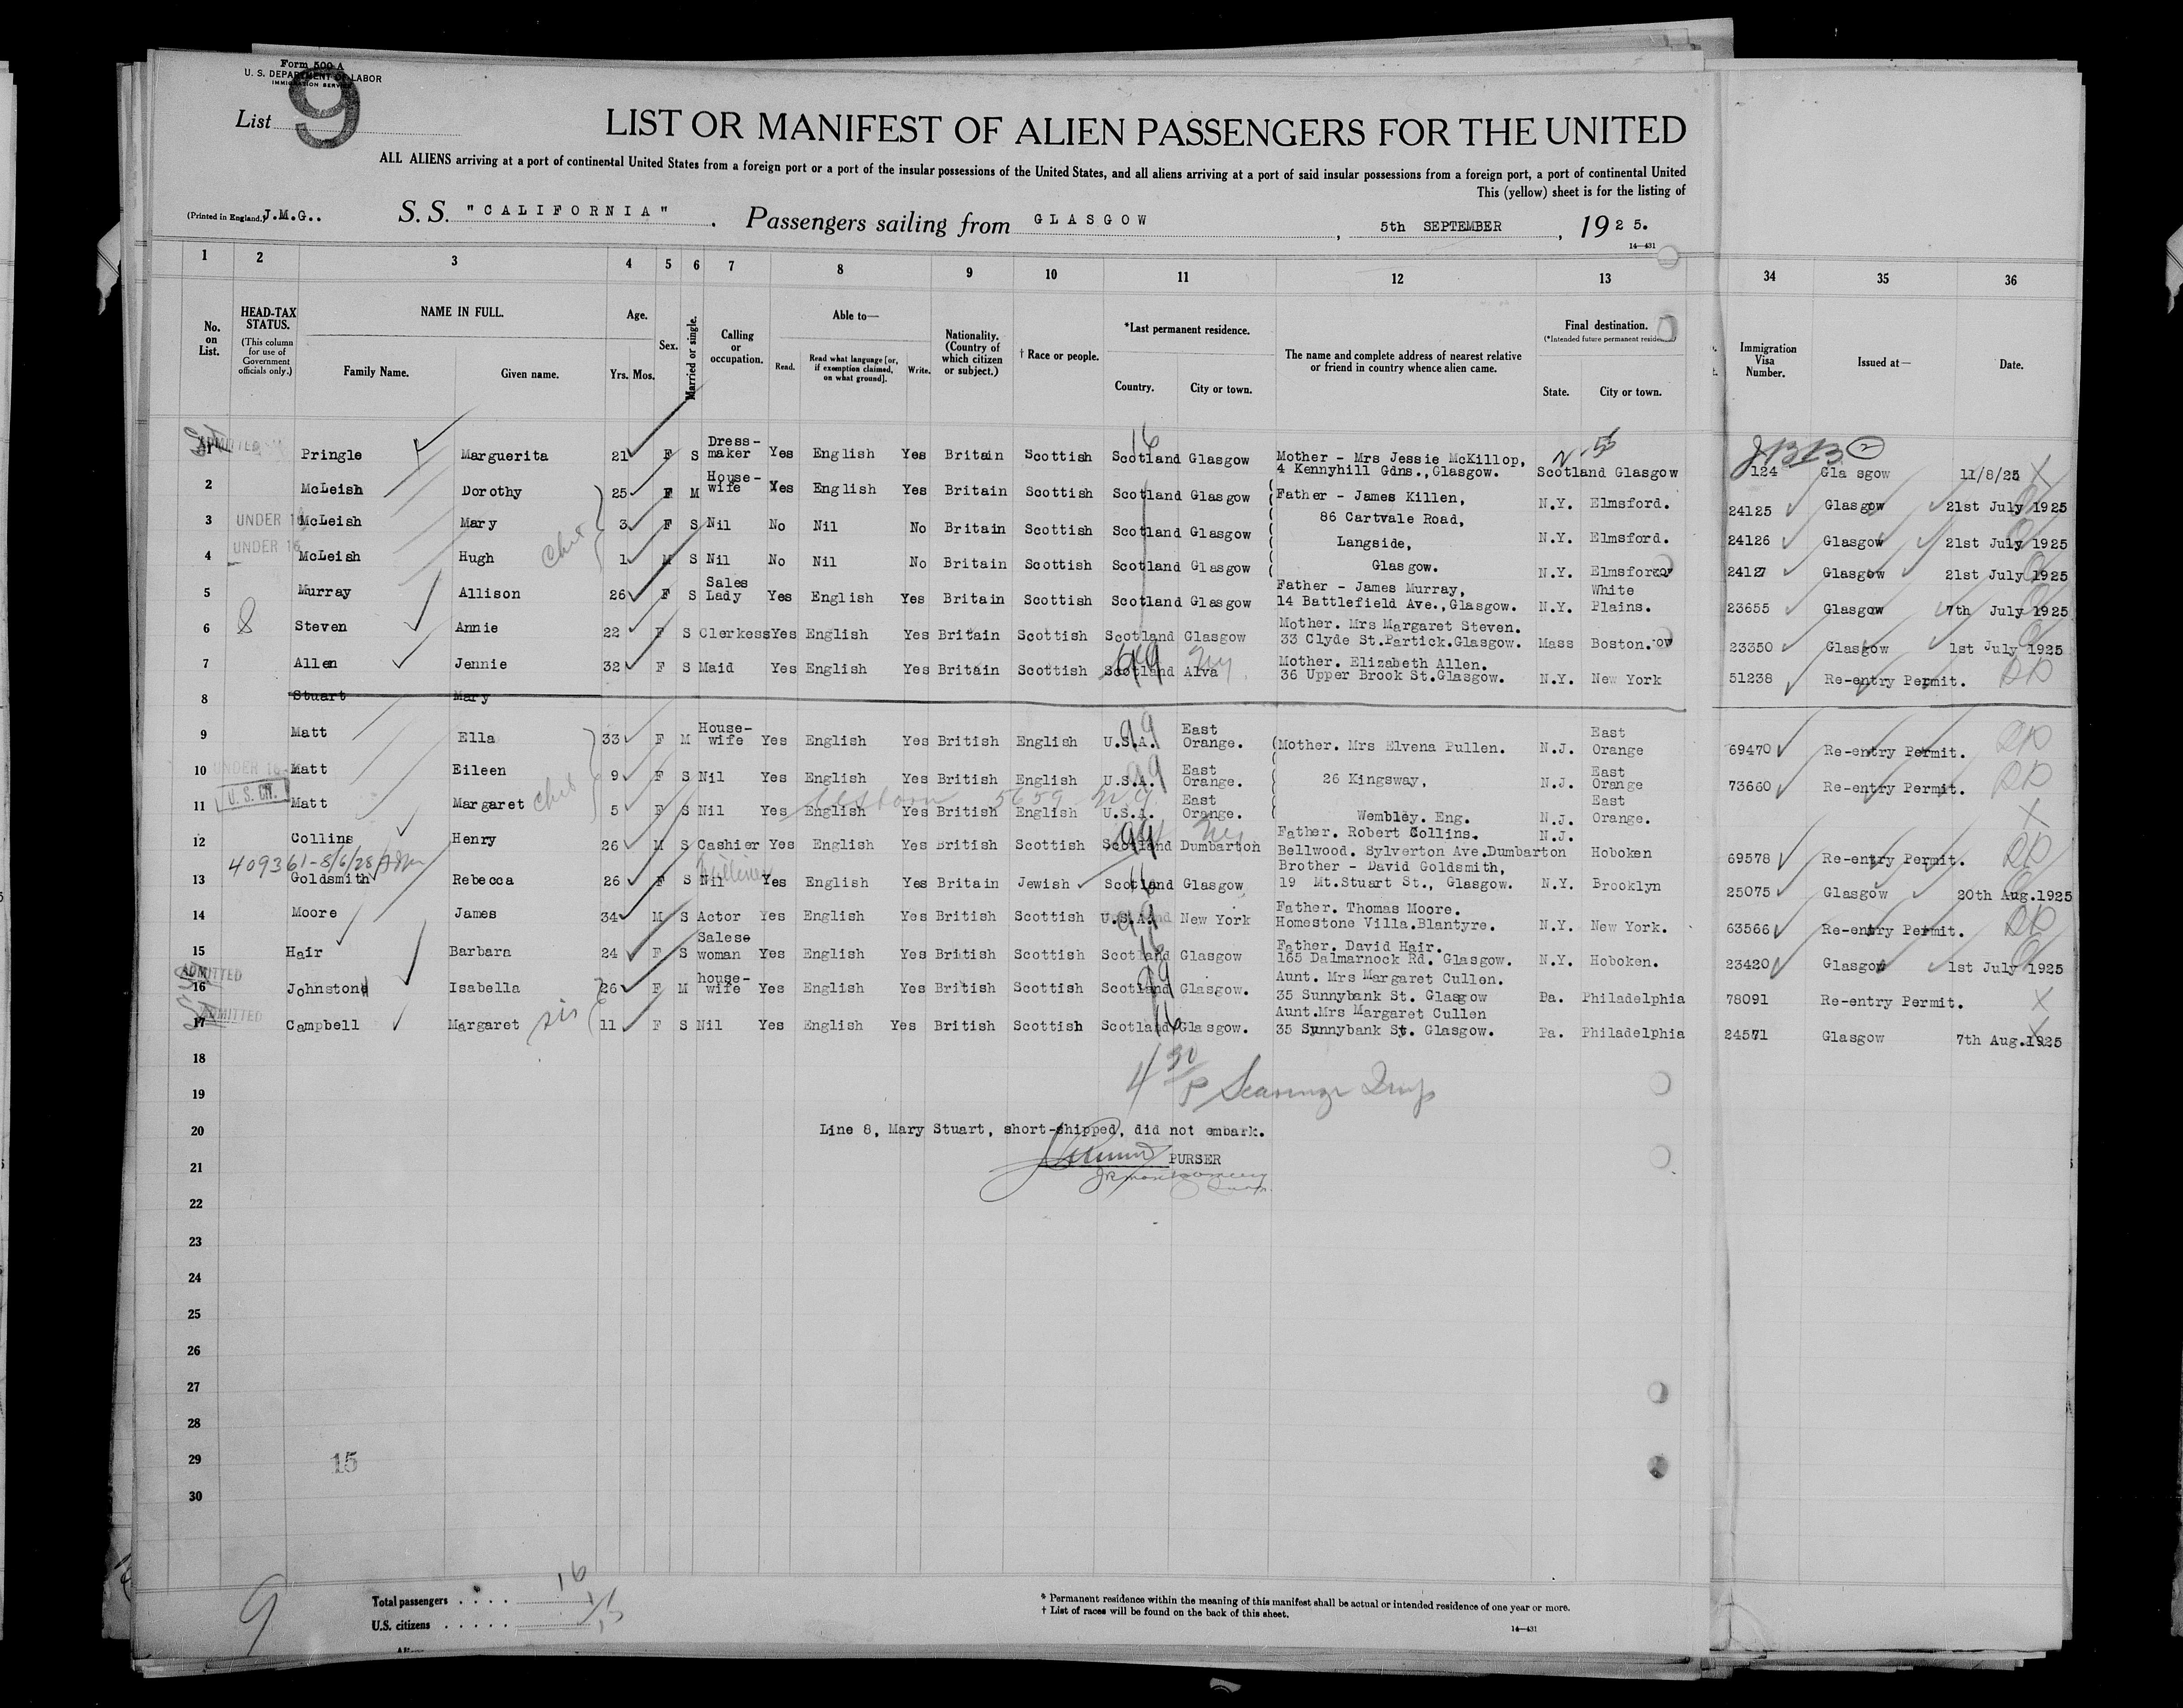 Form 500 A
U. S. DEPARTMENT OF LABOR
IMMIGRATION SERVICE
List 9
LIST OR MANIFEST OF ALIEN PASSENGERS FOR THE UNITED
ALL ALIENS arriving at a port of continental United States from a foreign port or a port of the insular possessions of the United States, and all aliens arriving at a port of said insular possessions from a foreign port, a port of continental United
This (yellow) sheet is for the listing of
(Printed in England.) J.M.G.. S. S. "CALIFORNIA" . Passengers sailing from GLASGOW , 5th SEPTEMBER , 1925.
14—431
1 2 3 4 5 6 7 8 9 10 11 12 13 34 35 36
No. on List. HEAD-TAX STATUS. (This column for use of Government officials only.) NAME IN FULL. Family Name. Given name. Age. Yrs. Mos. Sex. Married or single. Calling or occupation. Able to— Read. Read what language [or, if exemption claimed, on what ground]. Write. Nationality. (Country of which citizen or subject.) † Race or people. *Last permanent residence. Country. City or town. The name and complete address of nearest relative or friend in country whence alien came. Final destination. (*Intended future permanent residence) State. City or town. Immigration Visa Number. Issued at— Date.
1 ADMITTED Pringle Marguerita 21 F S Dress-maker Yes English Yes Britain Scottish Scotland Glasgow Mother - Mrs Jessie McKillop, 4 Kennyhill Gdns., Glasgow. Scotland Glasgow 124 Gla sgow 11/8/25
2 McLeish Dorothy 25 F M House-wife Yes English Yes Britain Scottish Scotland Glasgow Father - James Killen, N.Y. Elmsford. 24125 Glasgow 21st July 1925
3 UNDER 16 McLeish Mary 3 F S Nil No Nil No Britain Scottish Scotland Glasgow 86 Cartvale Road, N.Y. Elmsford. 24126 Glasgow 21st July 1925
4 UNDER 16 McLeish Hugh 1 M S Nil No Nil No Britain Scottish Scotland Glasgow Langside, Glasgow. N.Y. 24127 Glasgow 21st July 1925
5 Murray Allison 26 F S Sales Lady Yes English Yes Britain Scottish Scotland Glasgow Father - James Murray, 14 Battlefield Ave., Glasgow. N.Y. White Plains. 23655 Glasgow 7th July 1925
6 Steven Annie 22 F S Clerkess Yes English Yes Britain Scottish Scotland Glasgow Mother. Mrs Margaret Steven. 33 Clyde St.Partick.Glasgow. Mass Boston. 23350 Glasgow 1st July 1925
7 Allen Jennie 32 F S Maid Yes English Yes Britain Scottish Scotland Alva Mother. Elizabeth Allen. 36 Upper Brook St.Glasgow. N.Y. New York 51238 Re-entry Permit.
8 Stuart Mary
9 Matt Ella 33 F M House-wife Yes English Yes British English U.S.A. East Orange. Mother. Mrs Elvena Pullen. N.J. East Orange 69470 Re-entry Permit.
10 UNDER 16 Matt Eileen 9 F S Nil Yes English Yes British English U.S.A. East Orange. 26 Kingsway, N.J. East Orange 73660 Re-entry Permit.
11 U. S. CIT. Matt Margaret 5 F S Nil Yes English Yes British English U.S.A. East Orange. Wembley. Eng. N.J. East Orange.
12 Collins Henry 26 M S Cashier Yes English Yes British Scottish Scotland Dumbarton Father. Robert Collins. Bellwood. Sylverton Ave.Dumbarton N.J. Hoboken 69578 Re-entry Permit.
409361-8/6/28
13 Goldsmith Rebecca 26 F S Nil Yes English Yes Britain Jewish Scotland Glasgow Brother - David Goldsmith, 19 Mt.Stuart St., Glasgow. N.Y. Brooklyn 25075 Glasgow 20th Aug.1925
14 Moore James 34 M S Actor Yes English Yes British Scottish U.S.A. New York Father. Thomas Moore. Homestone Villa.Blantyre. N.Y. New York. 63566 Re-entry Permit.
15 Hair Barbara 24 F S Yes English Yes British Scottish Scotland Glasgow Father. David Hair. 165 Dalmarnock Rd. Glasgow. N.Y. Hoboken. 23420 Glasgow 1st July 1925
16 ADMITTED Johnston Isabella 26 F M house-wife Yes English Yes British Scottish Scotland Glasgow. Aunt. Mrs Margaret Cullen. 35 Sunnybank St. Glasgow Pa. Philadelphia 78091 Re-entry Permit.
17 ADMITTED Campbell Margaret sis 11 F S Nil Yes English Yes British Scottish Scotland Glasgow. Aunt.Mrs Margaret Cullen 35 Sunnybank St. Glasgow. Pa. Philadelphia 24571 Glasgow 7th Aug.1925
18
19
20 Line 8, Mary Stuart, short-shipped, did not embark.
21 PURSER
22
23
24
25
26
27
28
29 15
30
9
Total passengers . . . . 16
U.S. citizens . . . . . 1
15
* Permanent residence within the meaning of this manifest shall be actual or intended residence of one year or more.
† List of races will be found on the back of this sheet.
14—431